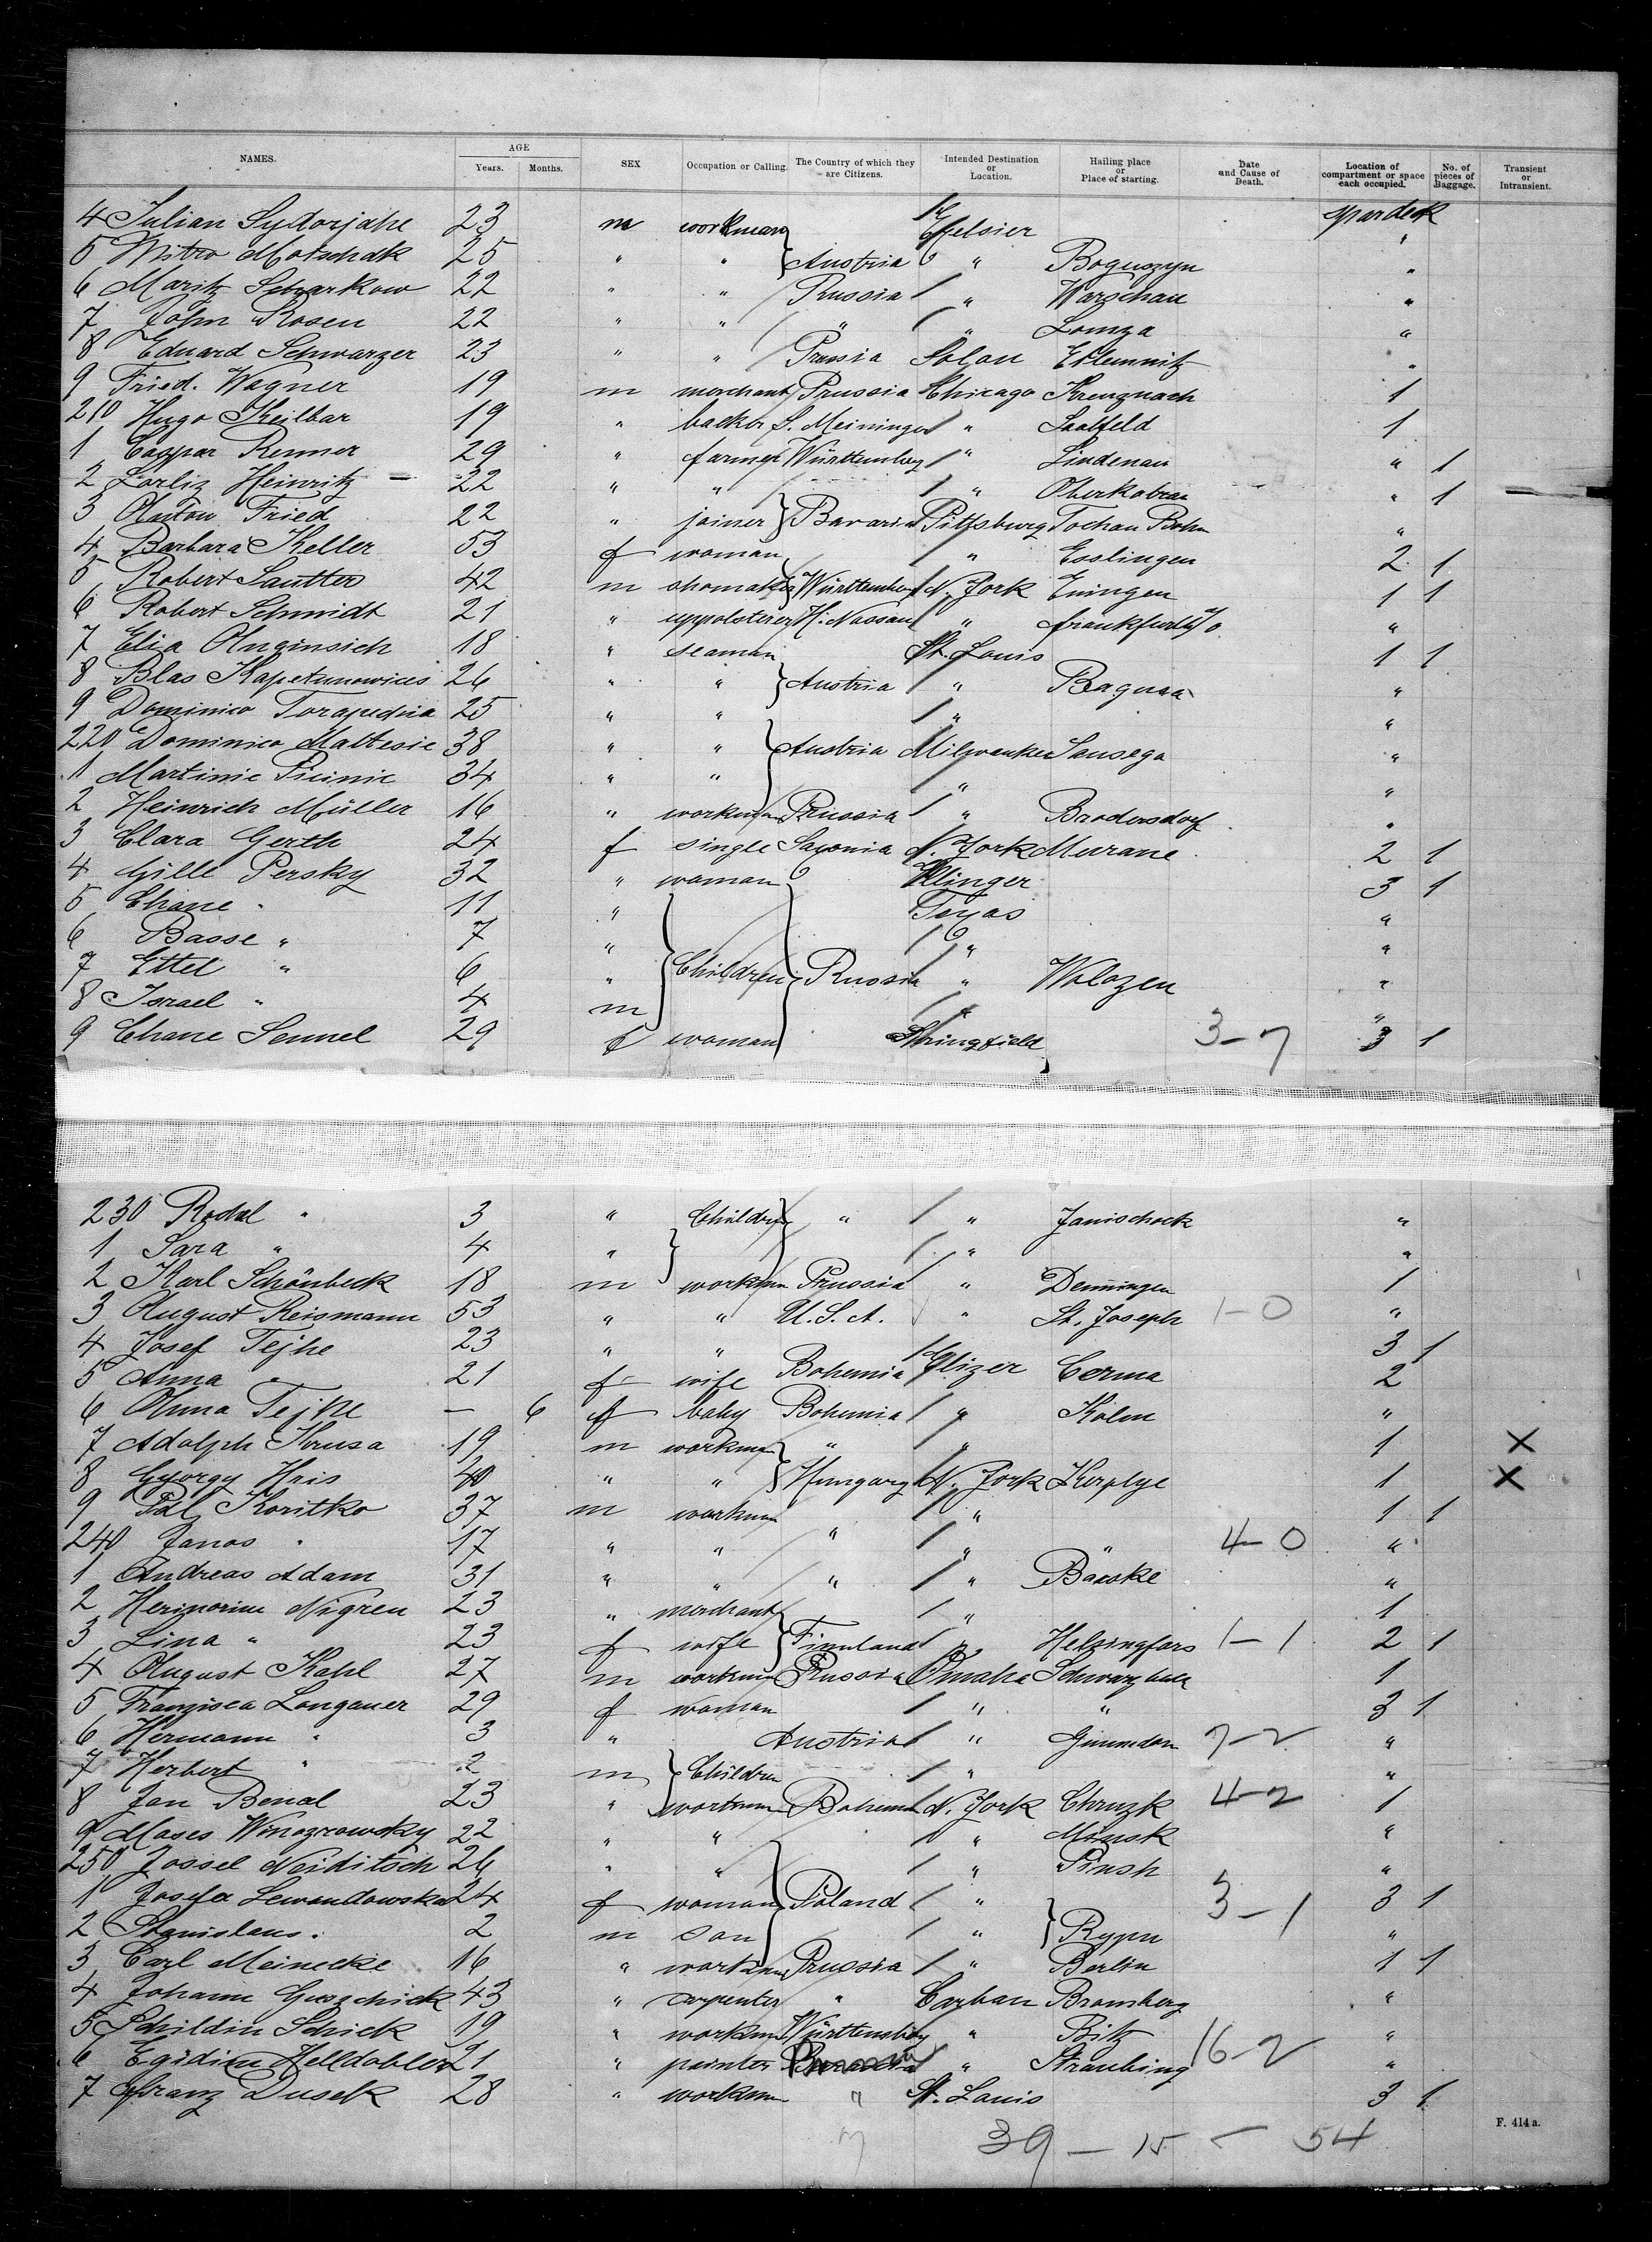 NAMES. AGE Years. Months. SEX Occupation or Calling. The Country of which they are Citizens. Intended Destination or Location. Hailing place or Place of starting. Date and Cause of Death. Location of compartment or space each occupied. No. of pieces of Baggage. Transient or Intransient.
4 Julian Sydorjahe 23 m workman spardeck
5 Mitro Motschak 25 " " Austria " Boguszyn "
6 Moritz 22 " " Russia " Warschau "
7 John Rosen 22 " " " " Lomza "
8 Eduard Schwarzer 23 " " Prussia Solon "
9 Fried. Wagner 19 m merchant Prussia Chicago Kreuznach 1
210 Hugo Keilbar 19 " backer S. Meiningen " Saalfeld 1
1 Caspar Renner 29 " farmer Württemberg " Lindenau " 1
2 Heinritz 22 " " " " 1
3 Anton Fried 22 " joiner Bavaria Pittsburg "
4 Barbara Keller 53 f woman " Esslingen 2 1
5 Robert Sautter 42 m shomaker Württemberg N. York Eningen 1 1
6 Robert Schmidt 21 " uppolsterer H. Nassau " frankfurth "
7 Elia 18 " seaman St. Louis 1 1
8 Blas 26 " " Austria " Ragusa "
9 Dominico 25 " " " "
220 Dominico Maltesic 38 " " Austria Milwaukee Sansego "
1 Martinic Picinic 34 " " " "
2 Heinrich Müller 16 " workman Prussia " Brodersdorf "
3 Clara Gerth 24 f single Saxonia N. York Merane 2 1
4 Gille Persky 32 " woman 3 1
5 Chane " 11 " Texas "
6 Basse " 7 " " "
7 Ettel " 6 " Children Russia " Wolozen "
8 Israel " 4 m " "
9 Chane Semmel 29 f woman Springfield 3-7 3 1
230 Rodel " 3 " Children " " Janischock "
1 Sara " 4 " " "
2 Karl Schönbeck 18 m workman Prussia " Denningen 1
3 August Reismann 53 " " U.S.A. " St. Joseph 1-0 "
4 Josef Tejhe 23 " " 3 1
5 Anna " 21 f wife Bohemia Cerma 2
6 Anna Tejhe — 6 f baby Bohemia " Kolin "
7 Adolph Krusa 19 m workman " " 1 X
8 György Hris 40 " " Hungary N. York Kerplye 1 X
9 Pal Koritko 37 m workman " 1 1
240 Janos " 17 " " " " " 4-0 "
1 Andreas Adam 31 " " " " "
2 Nigren 23 " merchant " 1
3 Lina " 23 f wife Finnland " Helsingfors 1-1 2 1
4 August Kahl 27 m workman Russia Omaha 1
5 Franzisca Langauer 29 f woman " " 3 1
6 Hermann " 3 " Austria " Gmunden 7-2 "
7 Herbert " 2 m Children " "
8 Jan Benal 23 " workman Bohemia N. York 4-2 1
9 Moses Winogrowsky 22 " " " Minsk "
250 Jossel Neiditsch 26 " " " Pinsk "
1 Josefa Lewandowska 24 f woman Poland " 3-1 3 1
2 Stanislaus " 2 m son " Rypin "
3 Carl Meinecke 16 " workman Prussia " Berlin 1 1
4 Johann 43 " carpenter " Bromberg "
5 Schick 19 " workman Württemberg " Bitz 16-2 "
6 21 " painter " Straubing "
7 Franz Dusek 28 " workman " St. Louis 3 1
39 - 15 - 54
F. 414 a.